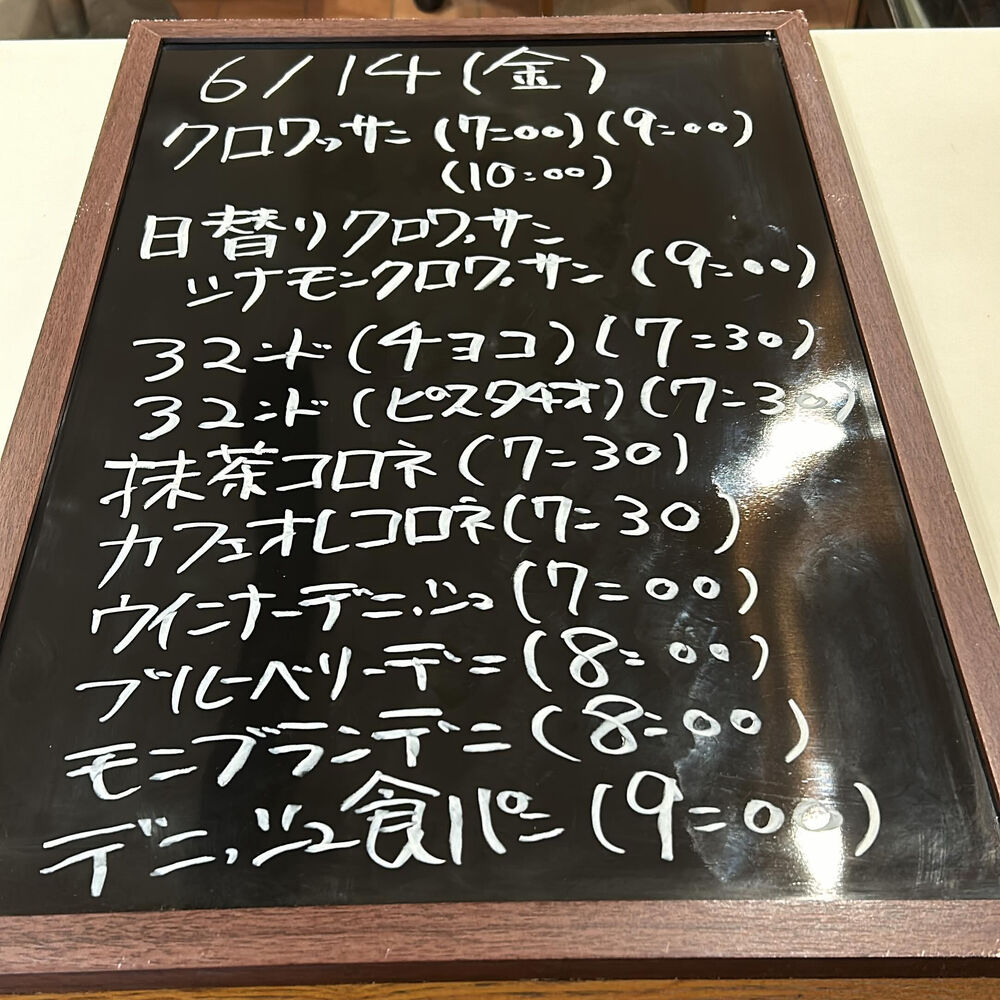 6/14(金)
クロワッサン (7:00)(9:00)
(10:00)
日替りクロワッサン
シナモンクロワッサン (9:00)
ヨロンド(チョコ)(7:30)
ヨロンド(ピスタチオ)(7:30)
抹茶コロネ(7:30)
カフェオレコロネ(7:30)
ウインナーデニッシュ(7:00)
ブルーベリーデニ(8:00)
モンブランデニ(8:00)
デニッシュ食パン(9:00)